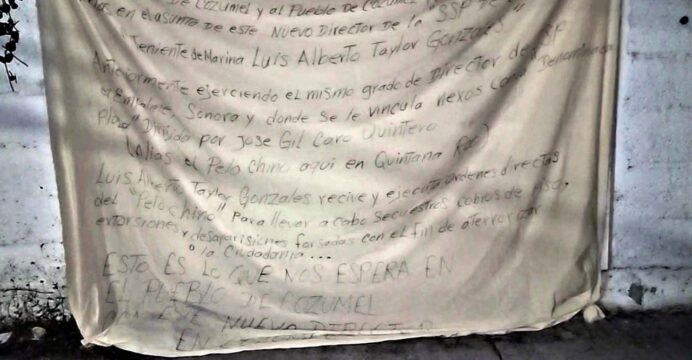 DE COZUMEL y al PUEBLO DE COZUMEL
en el asunto DE ESTE NUEVO DIRECTOR DE LA "SSP DE
"TENIENTE de MARINA LUIS ALBERTO TAYLOR GONZALES"
ANTERIORMENTE ejerciendo el mismo grado de DIRECTOR de SSP
EMPALME, SONORA y donde se le vincula nexos con la Denominada
Plaza" Dirijida por JOSE GIL CARO QUINTERO
(Alias el Pelo Chino aqui en QUINTANA Roo)
LUIS Alberto Taylor Gonzales recive y ejecuta ordenes directas
del "Pelo chino" Para llevar a cabo secuestros, cobros de Piso,
extorsiones y desaparisiones forsadas con el fin de aterrorizar
a la ciudadania...
ESTO ES LO QUE NOS ESPERA EN
EL PUEBLO DE COZUMEL
CON ESTE NUEVO DIRECTOR
EN